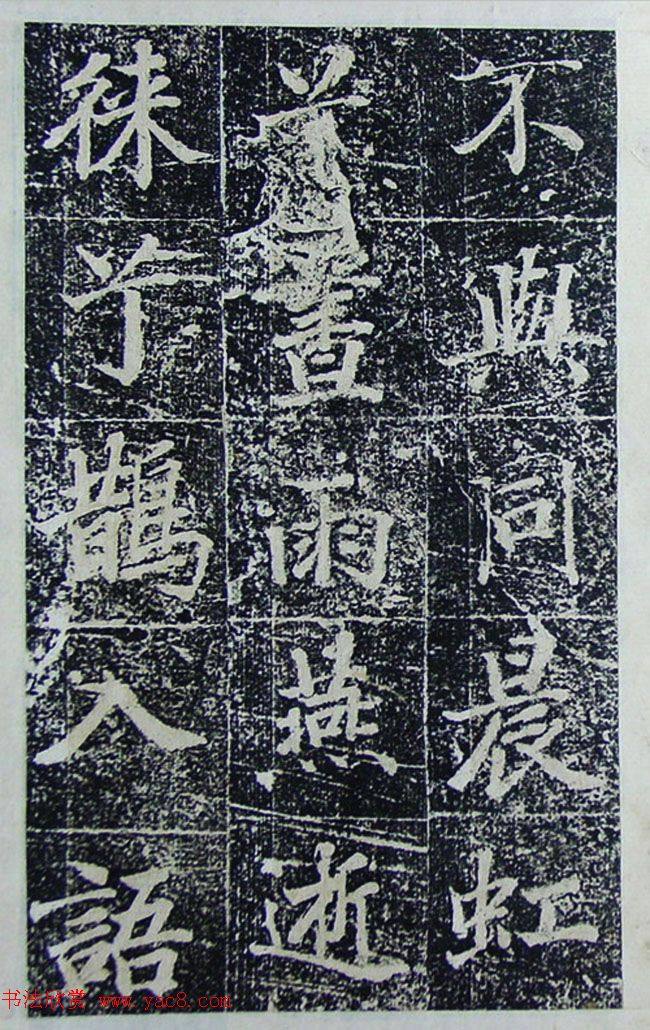 不與同晨虹
晝雨燕逝
徠乎鵲入語
书法欣赏 www.yac8.com